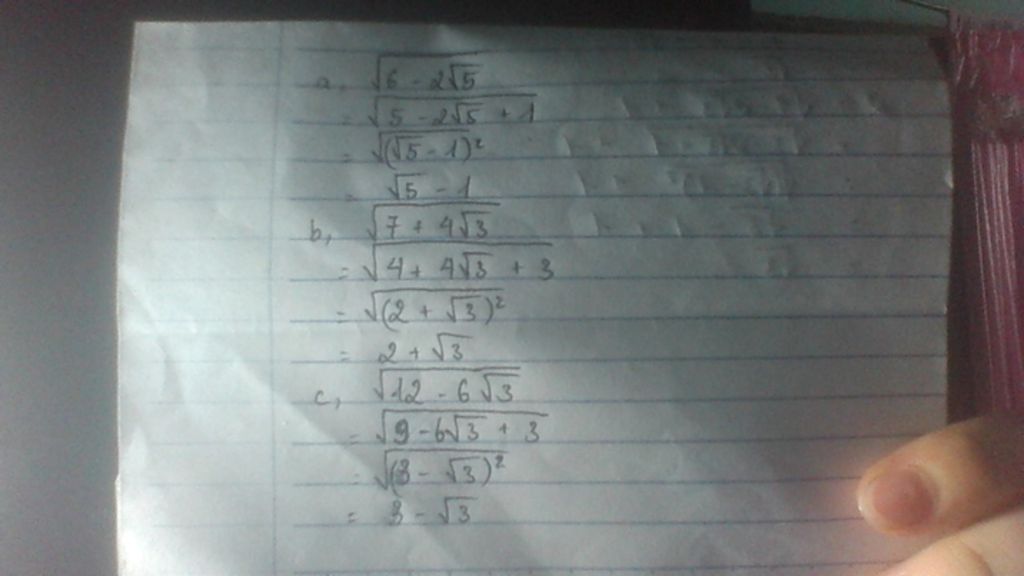 a, √(6 - 2√5)
= √(5 - 2√5 + 1)
= √((√5 - 1)²)
= √5 - 1
b, √(7 + 4√3)
= √(4 + 4√3 + 3)
= √((2 + √3)²)
= 2 + √3
c, √(12 - 6√3)
= √(9 - 6√3 + 3)
= √((3 - √3)²)
= 3 - √3